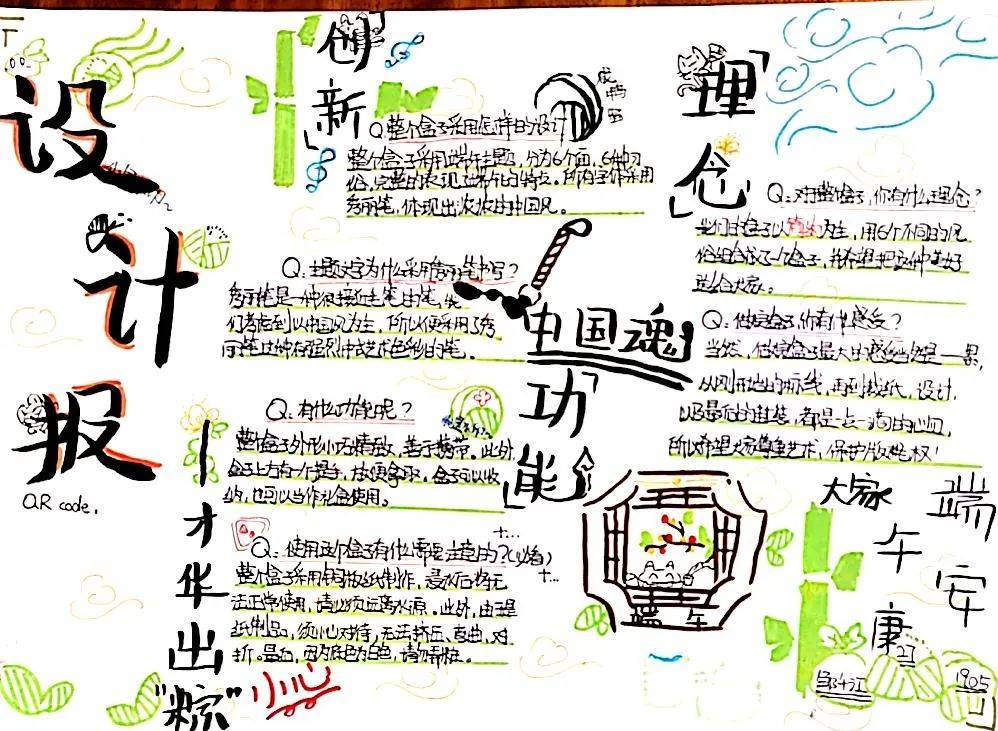 设计报
QR code.
「创新」
咸鸭蛋
Q:整个盒子采用怎样的设计
整个盒子采用端午主题,分为6个面,6种习
俗,完整的表现了端午的特点。所有字体采用
秀丽笔,体现出浓浓的中国风。
Q:主题文字为什么采用秀丽笔书写?
秀丽笔是一种很接近毛笔的笔,我
们考虑到以中国风为主,所以便采用了秀
丽笔这种有强烈中式艺术色彩的笔。
中国魂
「功能」
Q:有什么功能呢?
整个盒子外形小巧精致,善于携带。此外,
盒子上方有一个提手,方便拿取。盒子可以收
纳,也可以当作礼盒使用。
Q:使用这个盒子有什么需要注意的?(必看)
整个盒子采用铜版纸制作,浸水后将无
法正常使用,请必须远离水源。此外,由于是
纸制品,须小心对待,无法挤压、弯曲、对
折。最后,因为底色为白色,请勿弄脏。
小心
一才华出“粽”
「理念」
Q:对于整个盒子,你有什么理念?
我们的盒子以为主,用6个不同的风
俗组合成了一个盒子,并希望把这种美好
送给大家。
Q:做完盒子你有什么感受?
当然,做完盒子最大的感受当然是一累,
从刚开始的标线,再到裁纸、设计,
以及最后的组装,都是一点一滴的心血,
所以希望大家尊重艺术,保护版权!
端午
大家
端午安康
1905